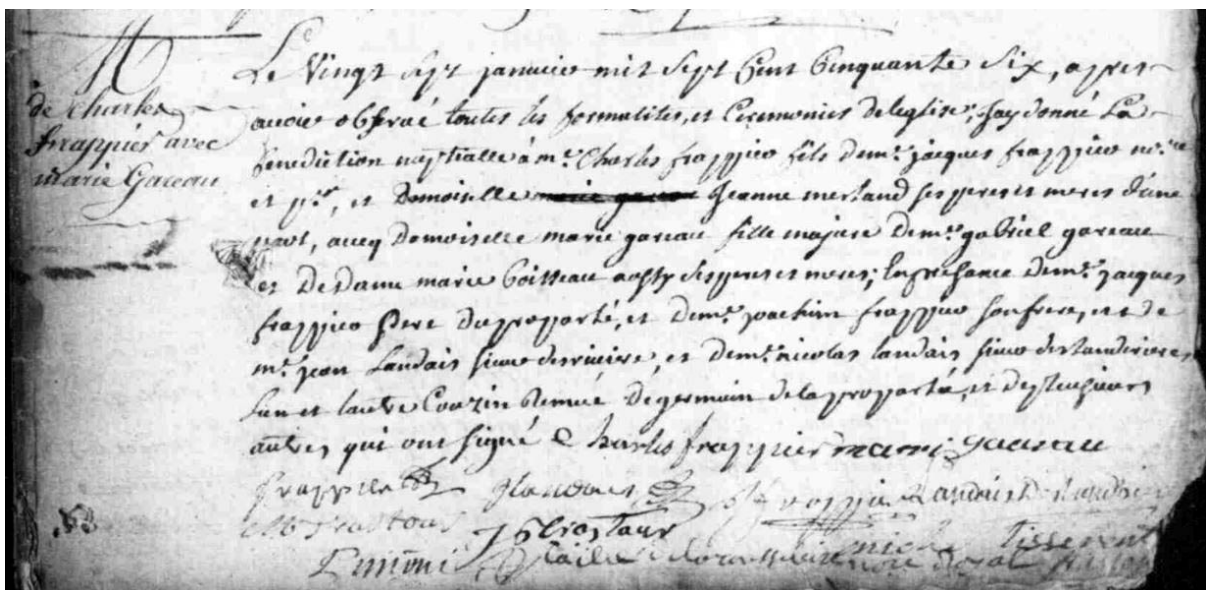 M
de Charles
frappier avec
marie Gareau
Le Vingt sept janvier mil sept Cent Cinquante Six, apres
avoir observé toutes les formalites, et Ceremonies de leglise, jay donné La
Benediction nuptialle à mr. Charles frappier fils de mr. jacques frappier nre
et pr, et Demoiselle Jeanne merland ses peres et meres d'une
part, aveq Demoiselle marie gareau fille majure de mr. gabriel gareau
et de Dame marie Boisseau aussy ses peres et meres; En presance de mr. jacques
frappier Pere du proparlé, et de mr. joachim frappier son frere, et de
mr. jean Landais sieur desriviere, et de mr. nicolas landais sieur des landerives,
Lun et lautre Couzin Remué de germain de la proparlé, et de plusieurs
autres qui ont signé Charles frappier marie gareau
frappier Landais frappier Landais
Tisserent